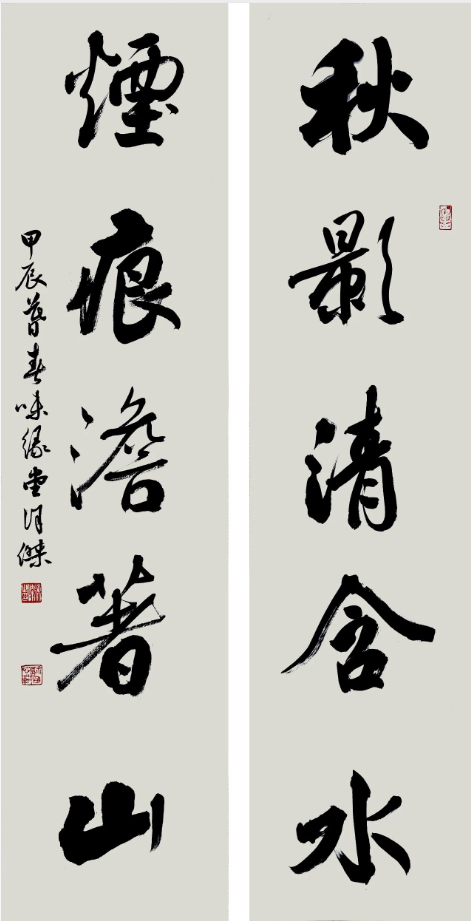 秋影清含水
煙痕澹著山
甲辰暮春味緣堂月傑